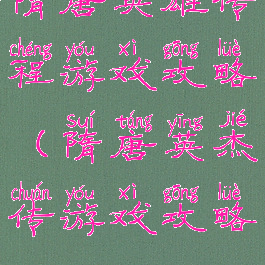 隋唐英雄传
chéng yóu xì gōng lüè
程游戏攻略
suí táng yīng jié
(隋唐英杰
chuán yóu xì gōng lüè
传游戏攻略